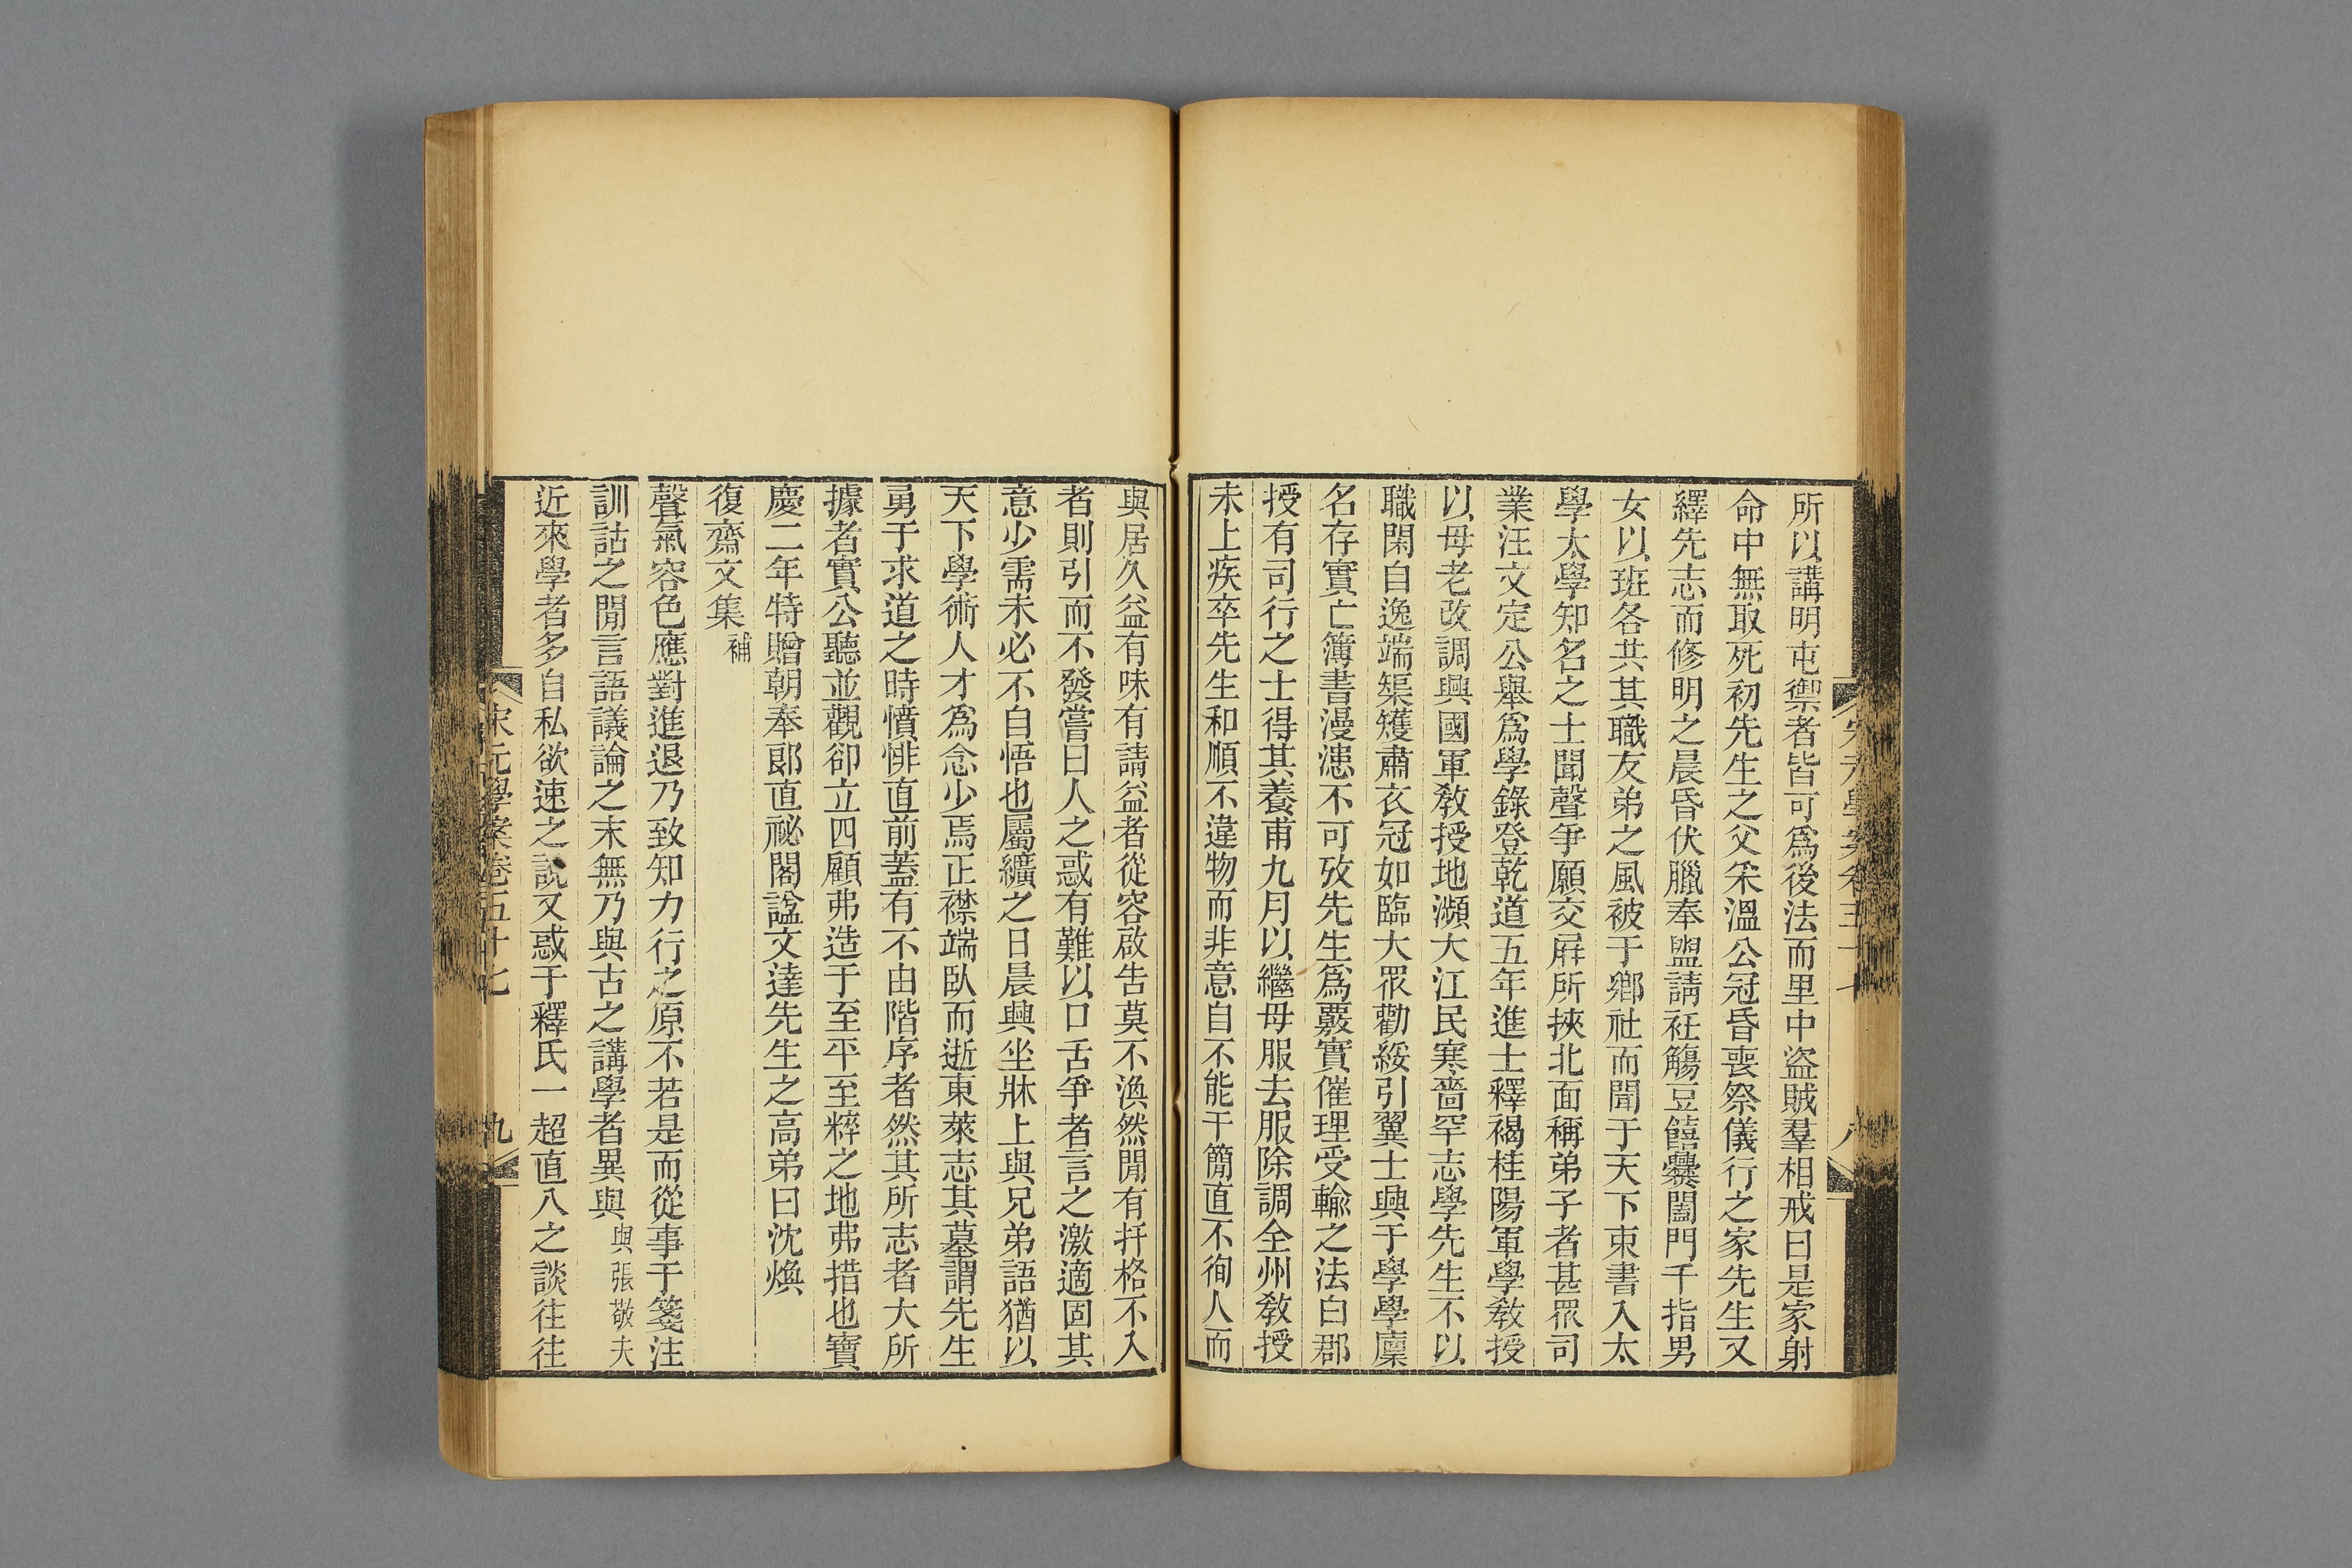 所以講明屯禦者皆可爲後法而里中盜賊羣相戒曰是家射
命中無取死初先生之父采溫公冠昏喪祭儀行之家先生又
繹先志而修明之晨昏伏臘奉盥請衽觴豆饎爨闔門千指男
女以班各共其職友弟之風被于鄉社而聞于天下束書入太
學太學知名之士聞聲爭願交屛所挾北面稱弟子者甚眾司
業汪文定公舉爲學錄登乾道五年進士釋褐桂陽軍學敎授
以母老改調興國軍敎授地瀕大江民寒嗇罕志學先生不以
職閑自逸端榘矱肅衣冠如臨大眾勸綏引翼士興于學學廩
名存實亡簿書漫漶不可攷先生爲覈實催理受輸之法白郡
授有司行之士得其養甫九月以繼母服去服除調全州敎授
未上疾卒先生和順不違物而非意自不能干簡直不徇人而
與居久益有味有請益者從容啟告莫不渙然閒有扞格不入
者則引而不發嘗曰人之惑有難以口舌爭者言之激適固其
意少需未必不自悟也屬纊之日晨興坐牀上與兄弟語猶以
天下學術人才爲念少焉正襟端臥而逝東萊志其墓謂先生
勇于求道之時憤悱直前蓋有不由階序者然其所志者大所
據者實公聽並觀卻立四顧弗造于至平至粹之地弗措也寶
慶二年特贈朝奉郞直祕閣諡文達先生之高弟曰沈煥
復齋文集補
聲氣容色應對進退乃致知力行之原不若是而從事于箋注
訓詁之閒言語議論之末無乃與古之講學者異與與張敬夫
近來學者多自私欲速之說又惑于釋氏一超直入之談往往
宋元學案卷五十七
九